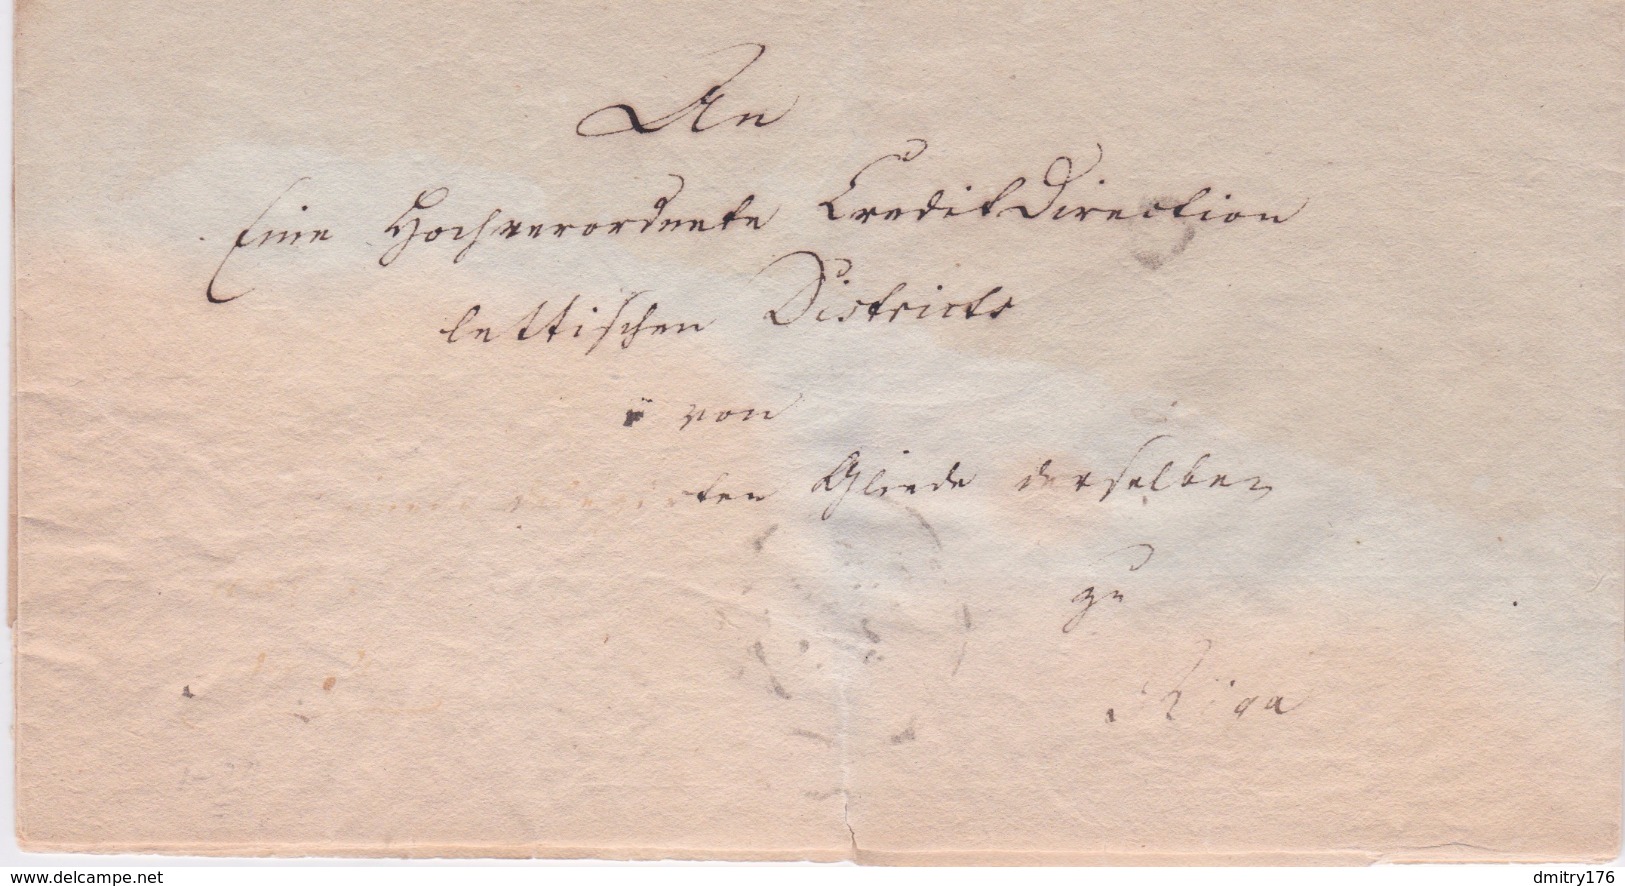 An
Eine Hochverordnete Credit Direction
lettischen Districts
von
Gliede derselben
zu
Riga
www.delcampe.net
dmitry176